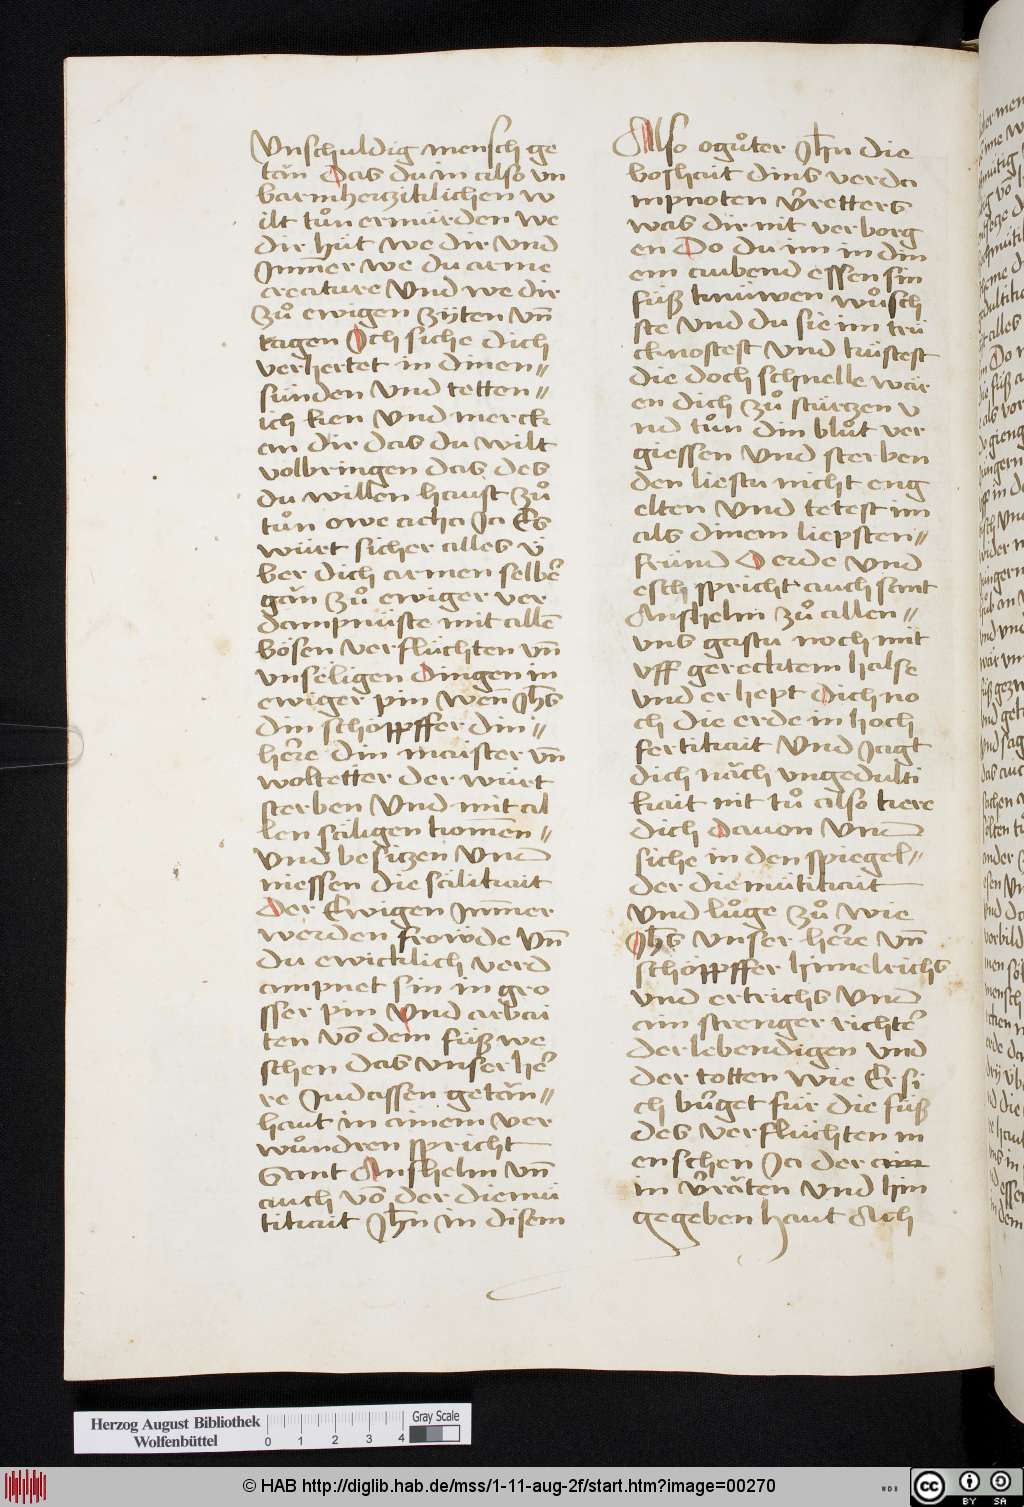 Vnschuldig mensch ge
tän Das du in also vn
barmherczicklichen w
ilt tůn ermürden we
dir hüt we dir vnd
Jnm̄er we du arme
creature Vnd we dir
zů ewigen zÿten vn̄
tagen Och siche dich
verhertet in dinen〃
sünden Vnd tetten〃
ich ken Vnd merck
an dir das du wilt
volbringen das des
du willen haust zů
tůn owe acha Ja Es
würt sicher alles ü
ber dich armen selbē
gān zů ewiger ver
dampnüste mit allē
bösen verflüchten vn̄
vnseligen Dingen in
ewiger pin wen̄ Jh̄s
din schöppffer din〃
hērre din maister vn̄
woltetter der würt
sterben Vnd mit al
len säligen kom̄en〃
Vnd besiczen Vnd
niessen die sälikait
Der Ewigen Jnm̄er
werden fröwde Vn̄
du ewicklich verd
ampnet sin in gro
sser pin Vnd arbai
ten vō dem füß we
schen das vnser hē
re Judassen getän〃
haut in ainem ver
wůndren spricht
Sant Anshelm vn̄
auch vō der diemü
tikait Jh̄n in disem
Also o gůter Jh̄n die
boshait dins verda
mpnoten v̄retters
was dir nit verborg
en Do du im in din
em aubend essen sin
füß knüwen wůsch
ste Vnd du sie im trü
cknostest Vnd küstest
die doch schnelle wär
en dich zů stürczen v
nd tůn din blůt ver
giessen Vnd sterben
den liestu nicht eng
elten Vnd tetest im
als dinem liepsten〃
fründ O erde Vnd
esch spricht auch sant
Anshelm zů allen〃
vns gastu noch mit
vff gerecktem halse
vnd er hept Dich no
ch die erde in hoch
fertikait Vnd Jagt
dich näch vngedulti
kait nit tů also kere
dich Dauon Vnd
siche in den spiegel〃
der diemütikait
Vnd lůge zů wie
Jh̄s Vnser hērre vn̄
schöppffer himelrichs
vnd ertrichs Vnd
ain strenger richtē
der lebendigen vnd
der totten wie Er si
ch bůget für die füß
des verflüchten m
enschen Ja der
in v̄räten Vnd hin
gegeben haut Ach
Herzog August Bibliothek
Wolfenbüttel
0 1 2 3 4
Gray Scale
© HAB http://diglib.hab.de/mss/1-11-aug-2f/start.htm?image=00270
WDB
CC BY SA